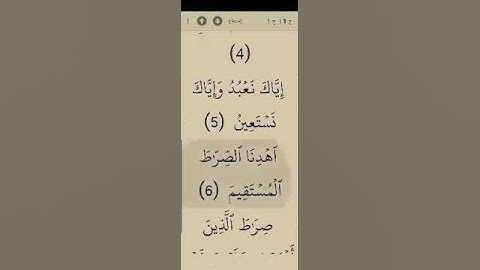 (4)
إِيَّاكَ نَعۡبُدُ وَإِيَّاكَ
نَسۡتَعِينُ (5)
ٱهۡدِنَا ٱلصِّرَٰطَ
ٱلۡمُسۡتَقِيمَ (6)
صِرَٰطَ ٱلَّذِينَ